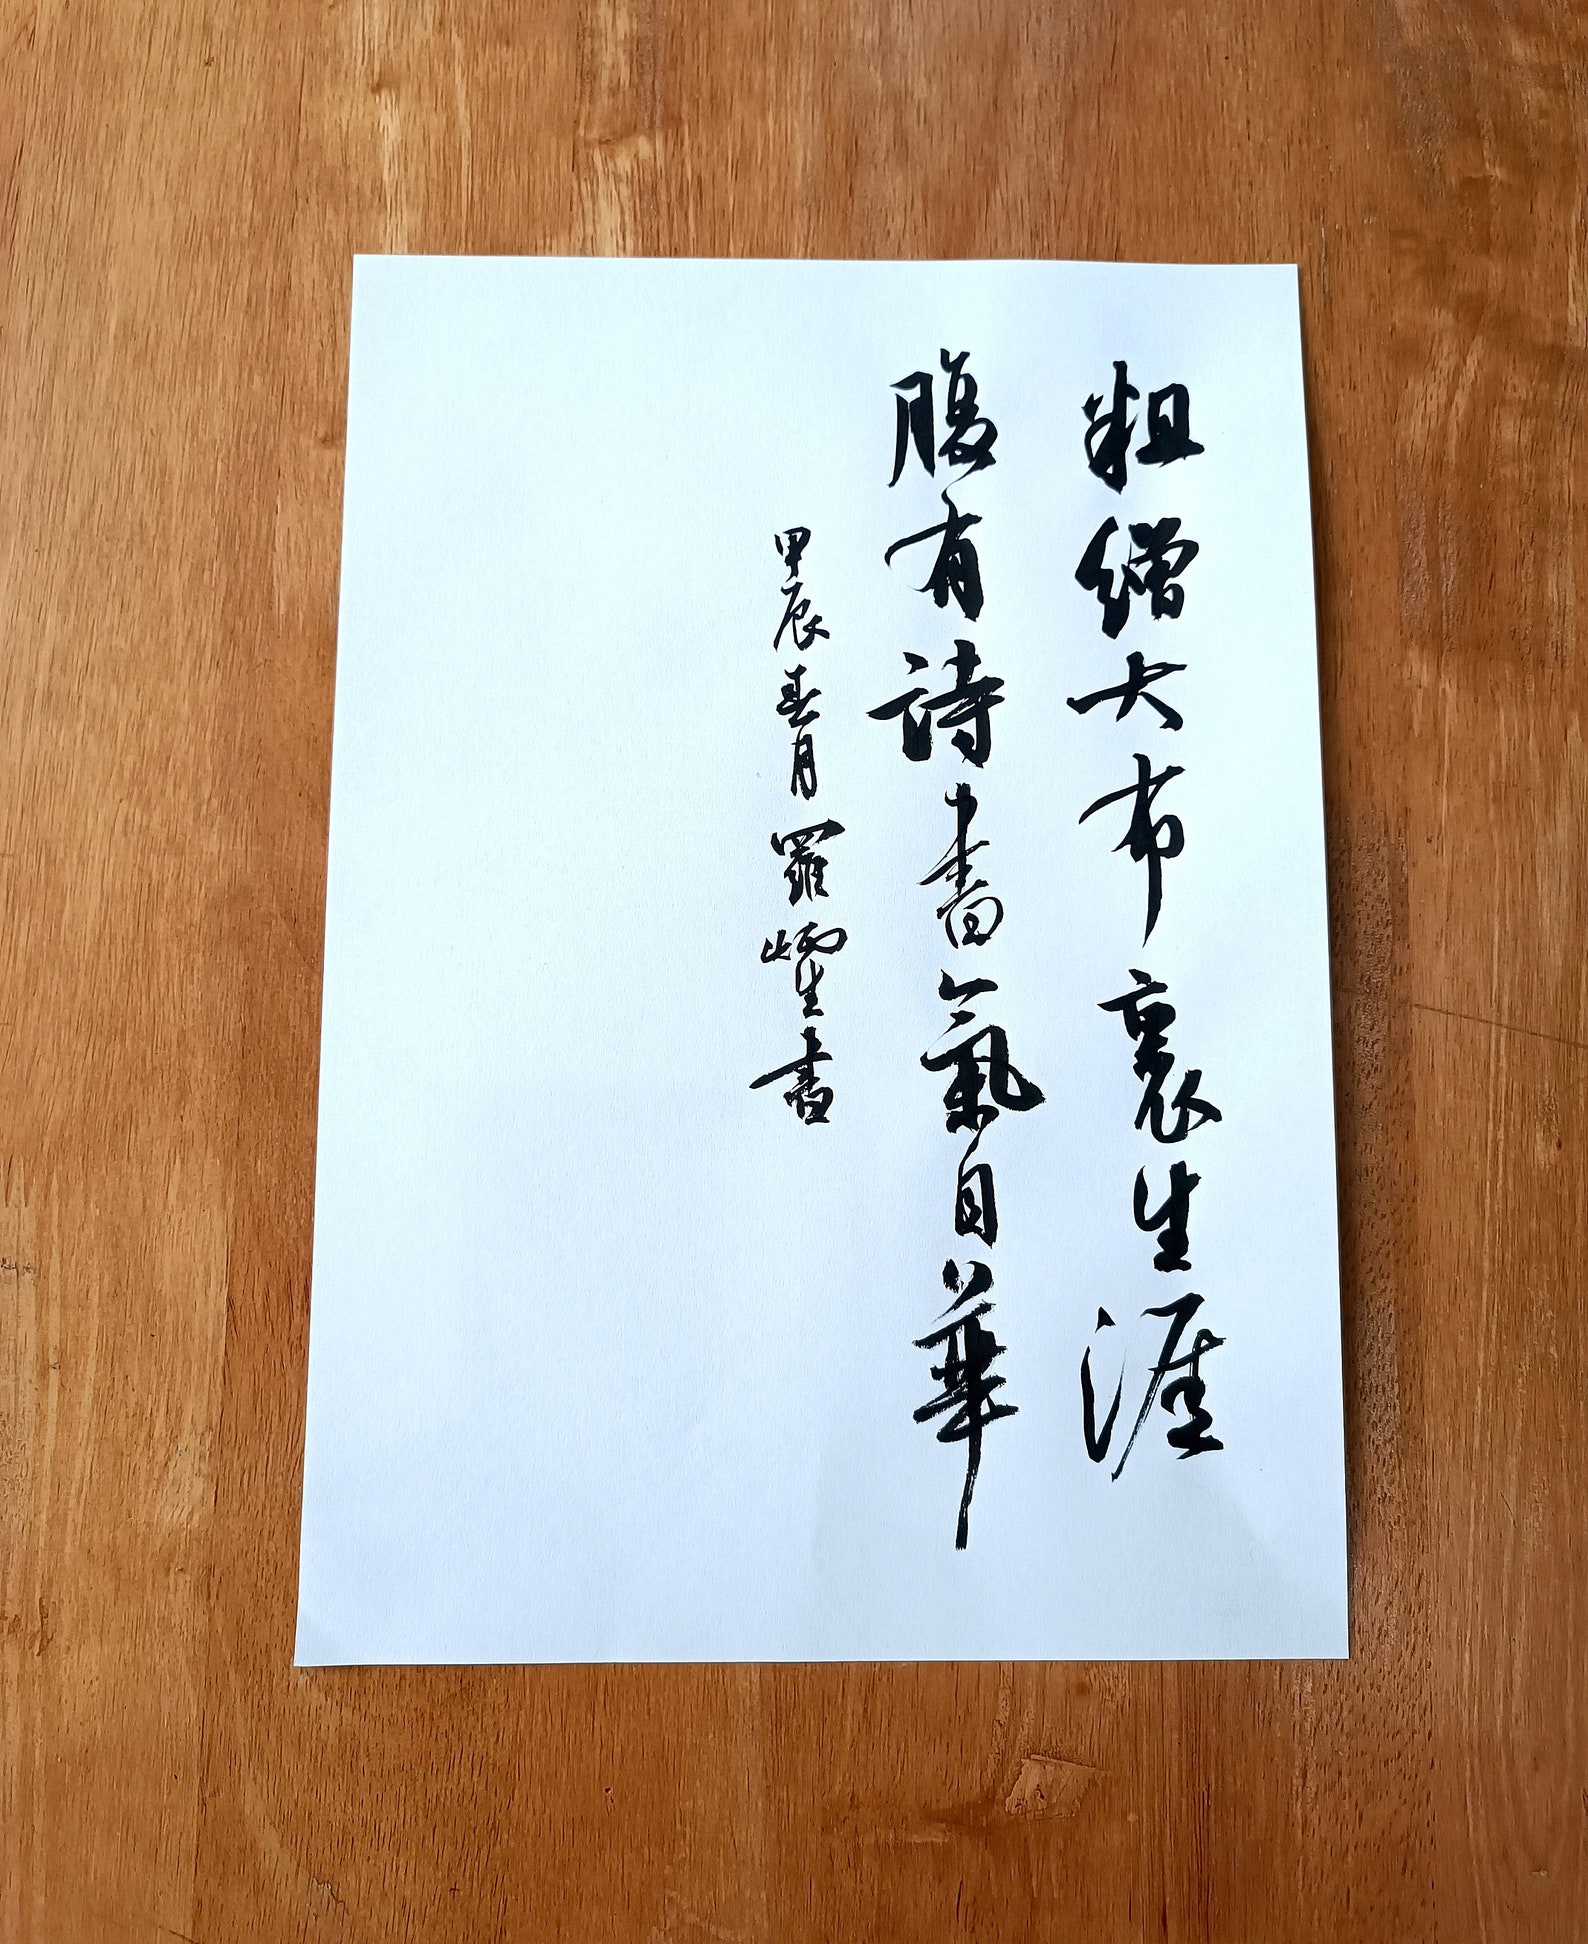 粗繒大布裹生涯
腹有詩書氣自華
甲辰春月羅炳生書